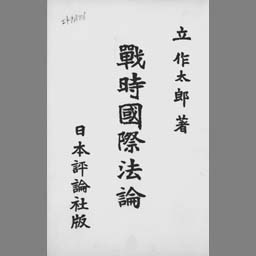 立作太郎著
戰時國際法論
日本評論社版